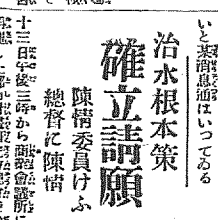 いと某消息通はいつてゐる
治水根本策
確立請願
陳情委員けふ
總督に陳情
十三日午後三時から商業會議所に